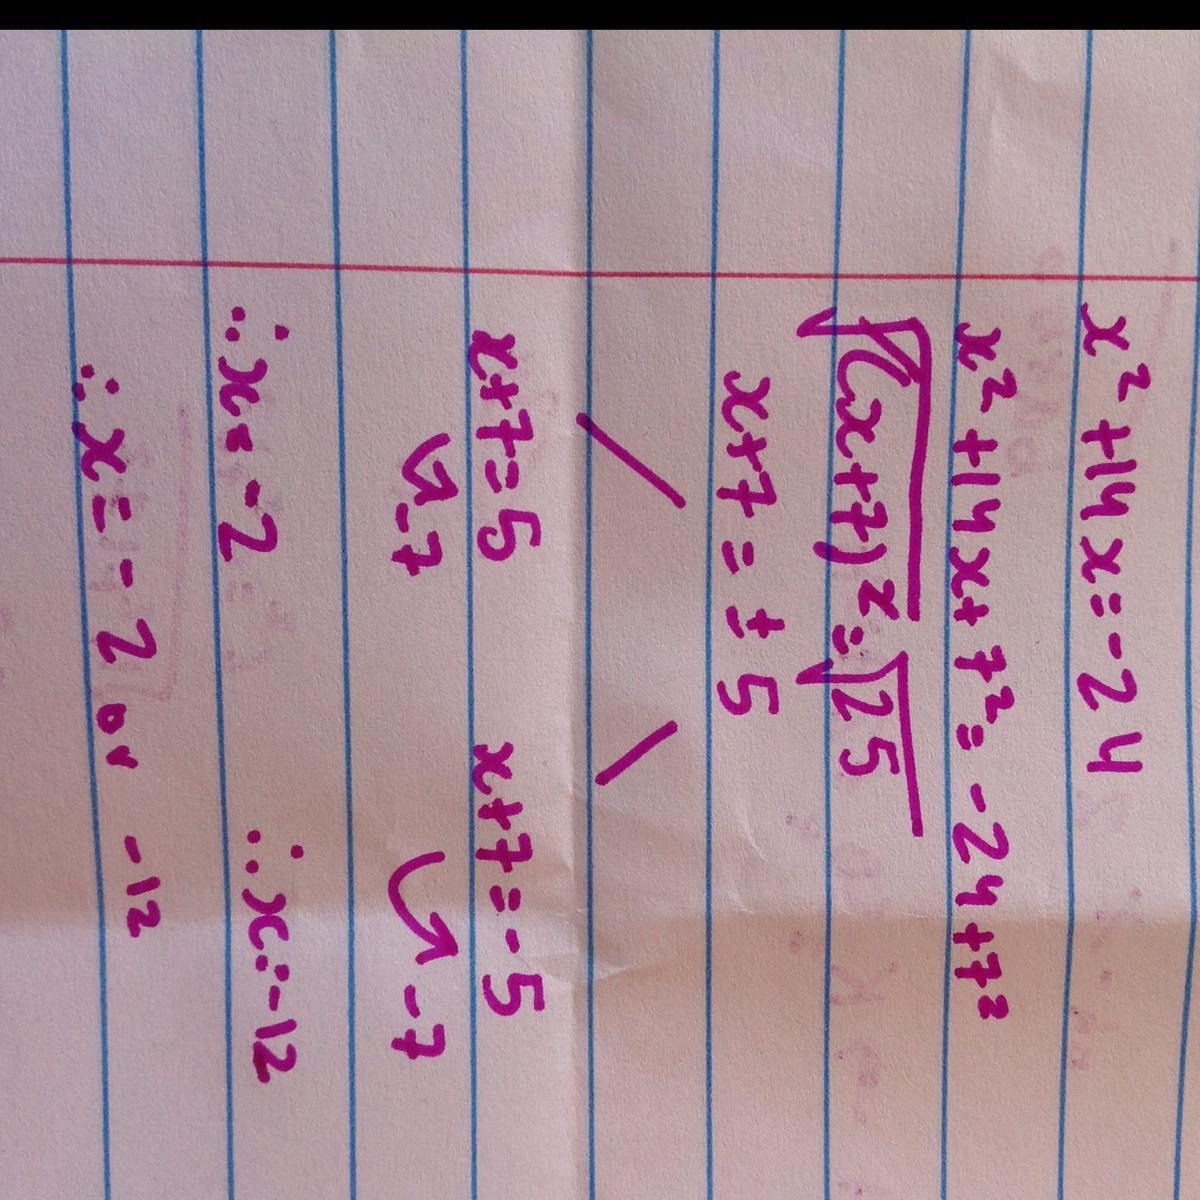 x² + 14x = -24
x² + 14x + 7² = -24 + 7²
√(x+7)² = √25
x+7 = ± 5
x+7 = 5 x+7 = -5
-7 -7
∴ x = -2 ∴ x = -12
∴ x = -2 or -12